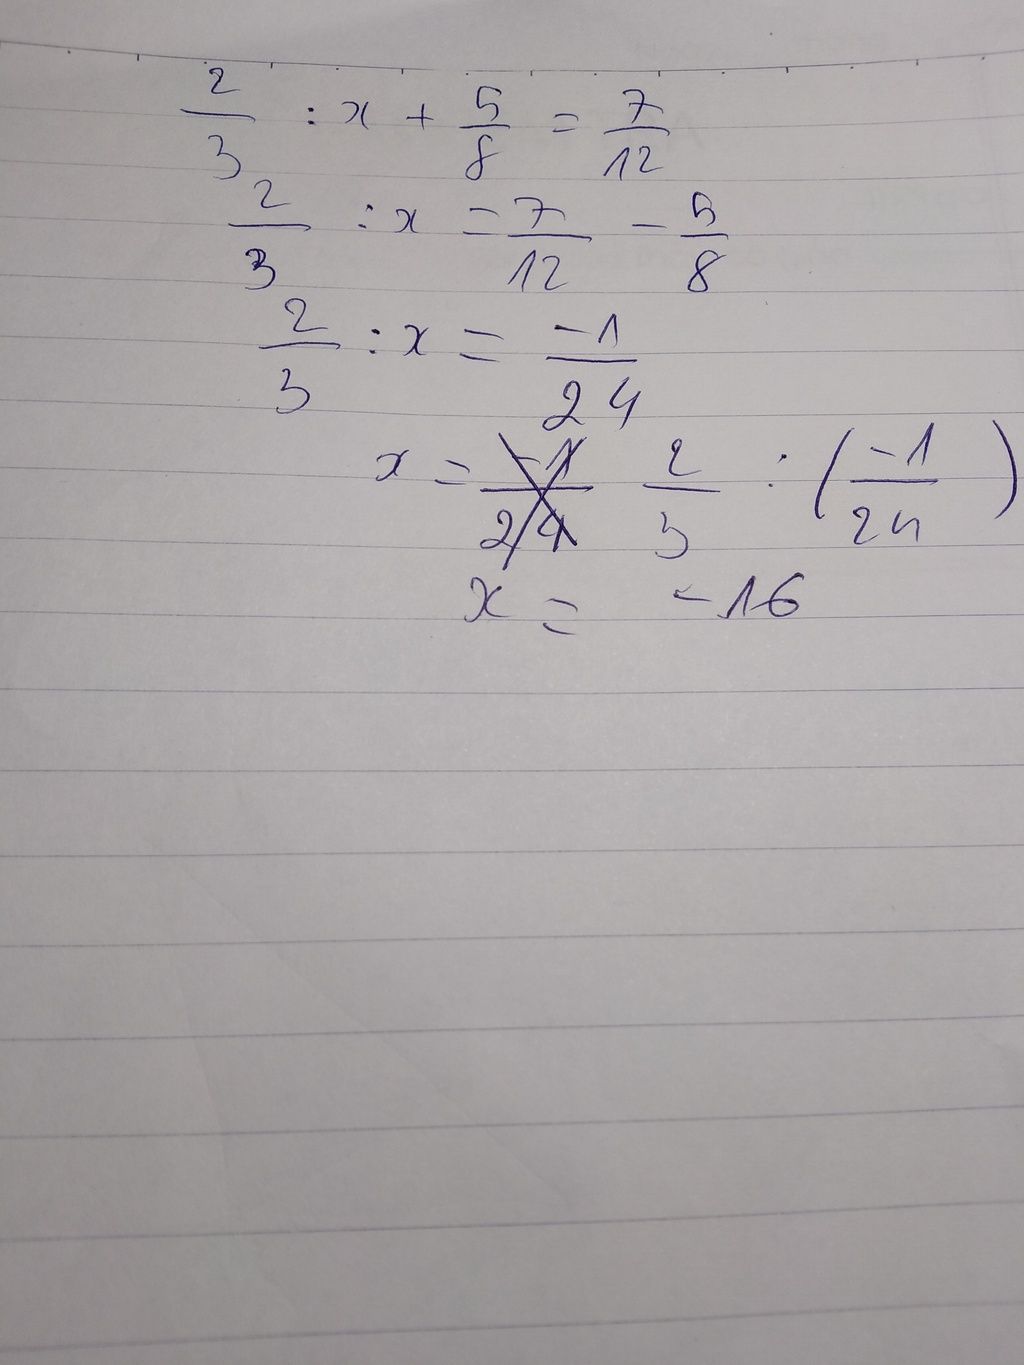 2/3 : x + 5/8 = 7/12
2/3 : x = 7/12 - 5/8
2/3 : x = -1/24
x = -1/24 2/3 : (-1/24)
x = -16